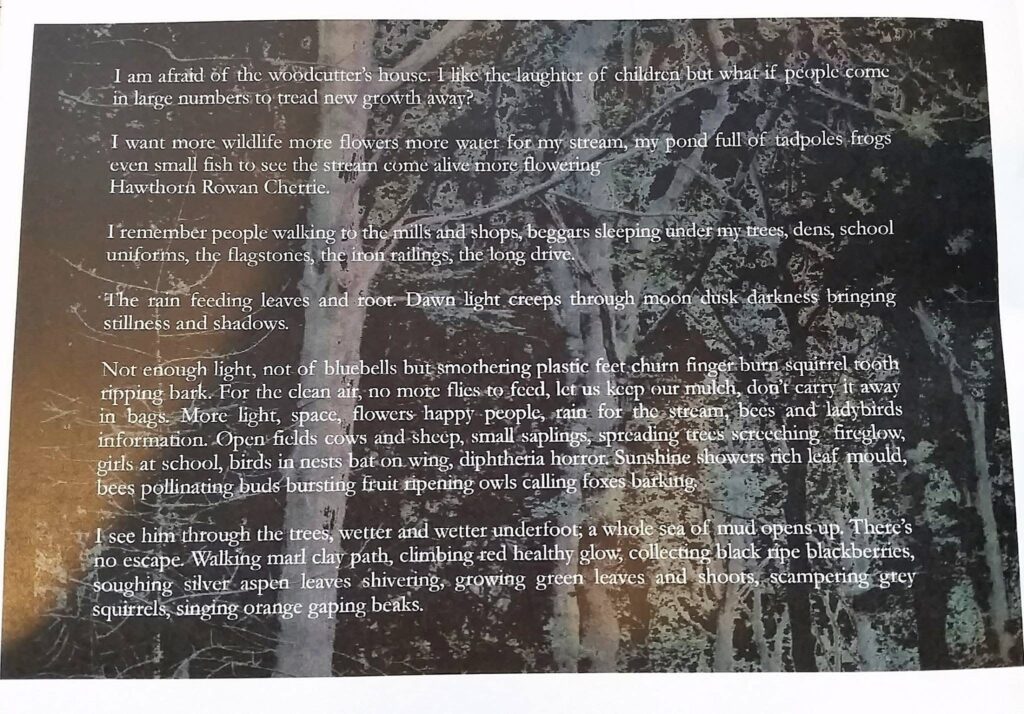 I am afraid of the woodcutter's house. I like the laughter of children but what if people come
in large numbers to tread new growth away?
I want more wildlife more flowers more water for my stream, my pond full of tadpoles frogs
even small fish to see the stream come alive more flowering
Hawthorn Rowan Cherrie.
I remember people walking to the mills and shops, beggars sleeping under my trees, dens, school
uniforms, the flagstones, the iron railings, the long drive.
The rain feeding leaves and root. Dawn light creeps through moon dusk darkness bringing
stillness and shadows.
Not enough light, not of bluebells but smothering plastic feet churn finger burn squirrel tooth
ripping bark. For the clean air, no more flies to feed, let us keep our mulch, don't carry it away
in bags. More light, space, flowers happy people, rain for the stream, bees and ladybirds
information. Open fields cows and sheep, small saplings, spreading trees screeching fireglow,
girls at school, birds in nests bat on wing, diphtheria horror. Sunshine showers rich leaf mould,
bees pollinating buds bursting fruit ripening owls calling foxes barking.
I see him through the trees, wetter and wetter underfoot; a whole sea of mud opens up. There's
no escape. Walking marl clay path, climbing red healthy glow, collecting black ripe blackberries,
soughing silver aspen leaves shivering, growing green leaves and shoots, scampering grey
squirrels, singing orange gaping beaks.